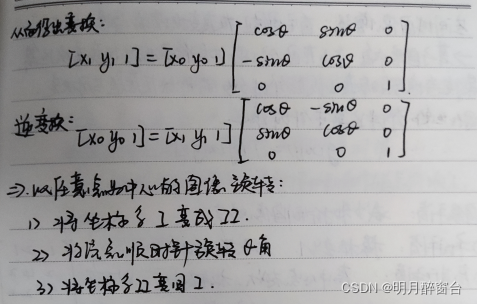 从而得出变换:
[x₁ y₁ 1] = [x₀ y₀ 1] [cosθ sinθ 0
-sinθ cosθ 0
0 0 1]
逆变换: [x₀ y₀ 1] = [x₁ y₁ 1] [cosθ -sinθ 0
sinθ cosθ 0
0 0 1]
⇒ 以任意点为中心的图像旋转:
1> 将坐标系I变成II.
2> 将该点顺时针旋转θ角
3> 将坐标系II变回I.
CSDN @明月醉窗台